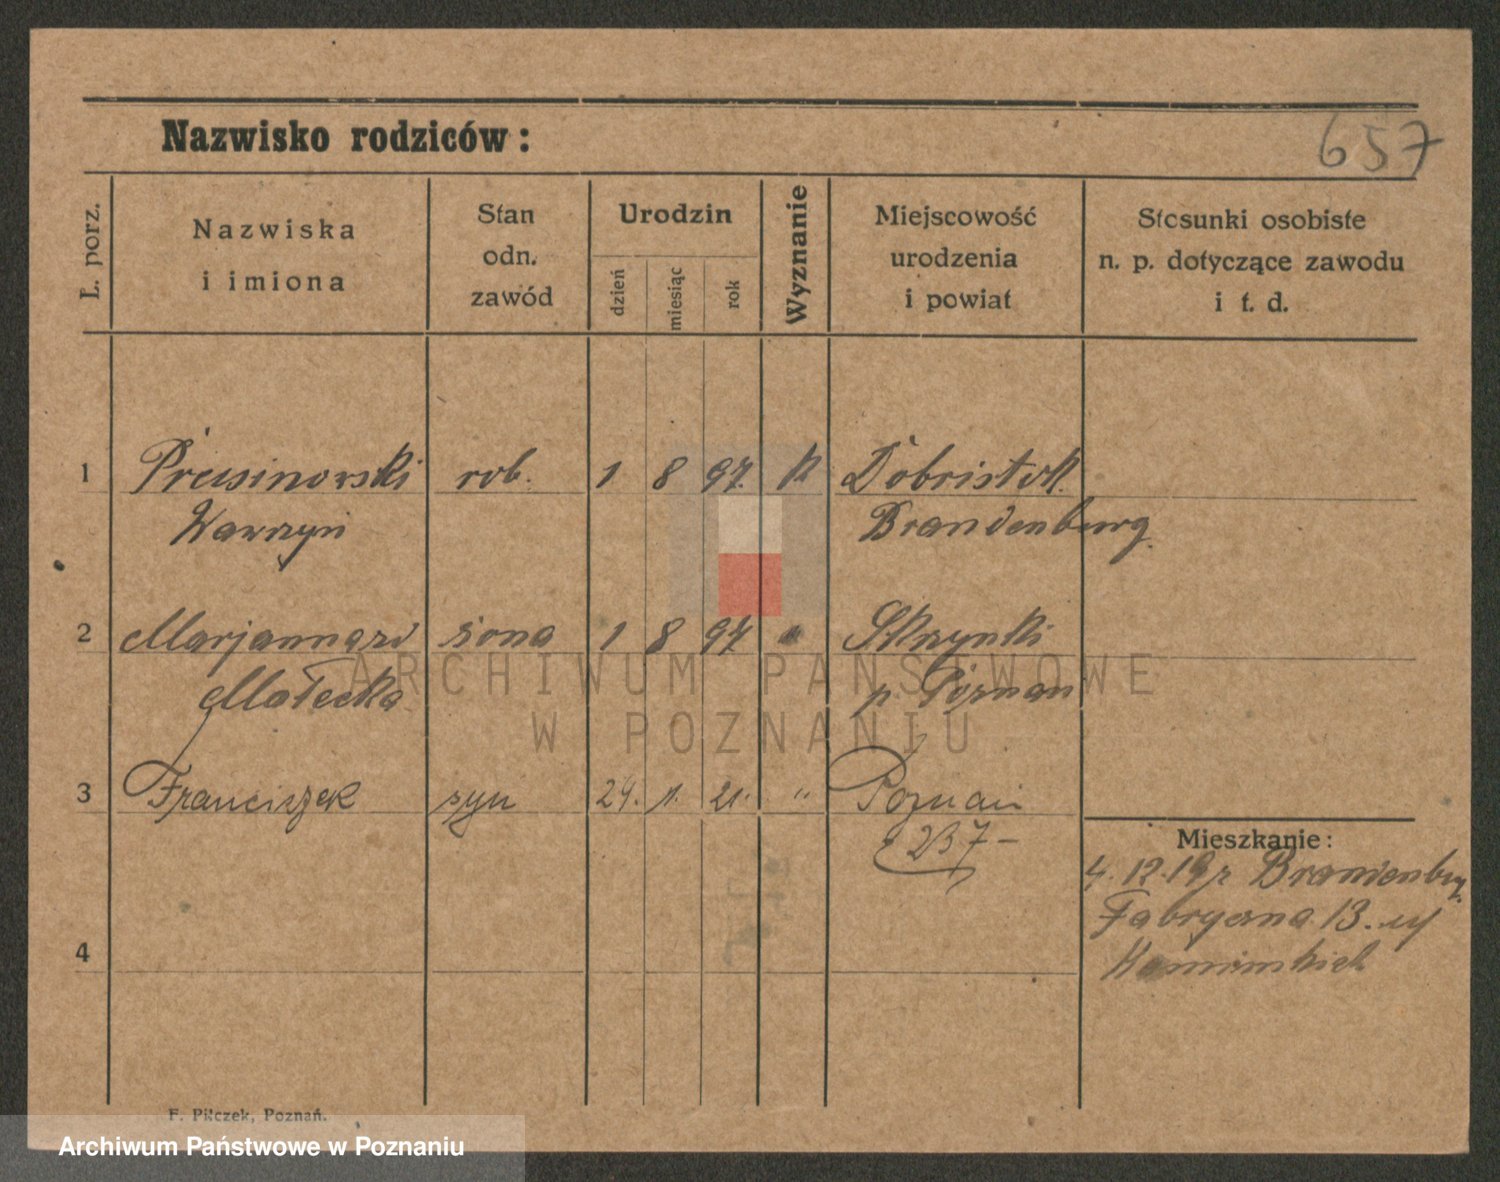 Nazwisko rodziców:
657
L. porz.
Nazwiska
i imiona
Stan
odn.
zawód
Urodzin
dzień
miesiąc
rok
Wyznanie
Miejscowość
urodzenia
i powiat
Stosunki osobiste
n. p. dotyczące zawodu
i t. d.
1 Prusinowski rob. 1 8 97. k
Wawrzyn Brandenburg
2 żona 1 8 97. Skrzynki
Małecka p. Poznan
3 Franciszek syn 24. 1. 21. " Poznań
Mieszkanie:
4. 12. 19 r Brandenburg
Fabryczna 13.
4
F. Pilczek, Poznań.
ARCHIWUM PAŃSTWOWE
W POZNANIU
Archiwum Państwowe w Poznaniu